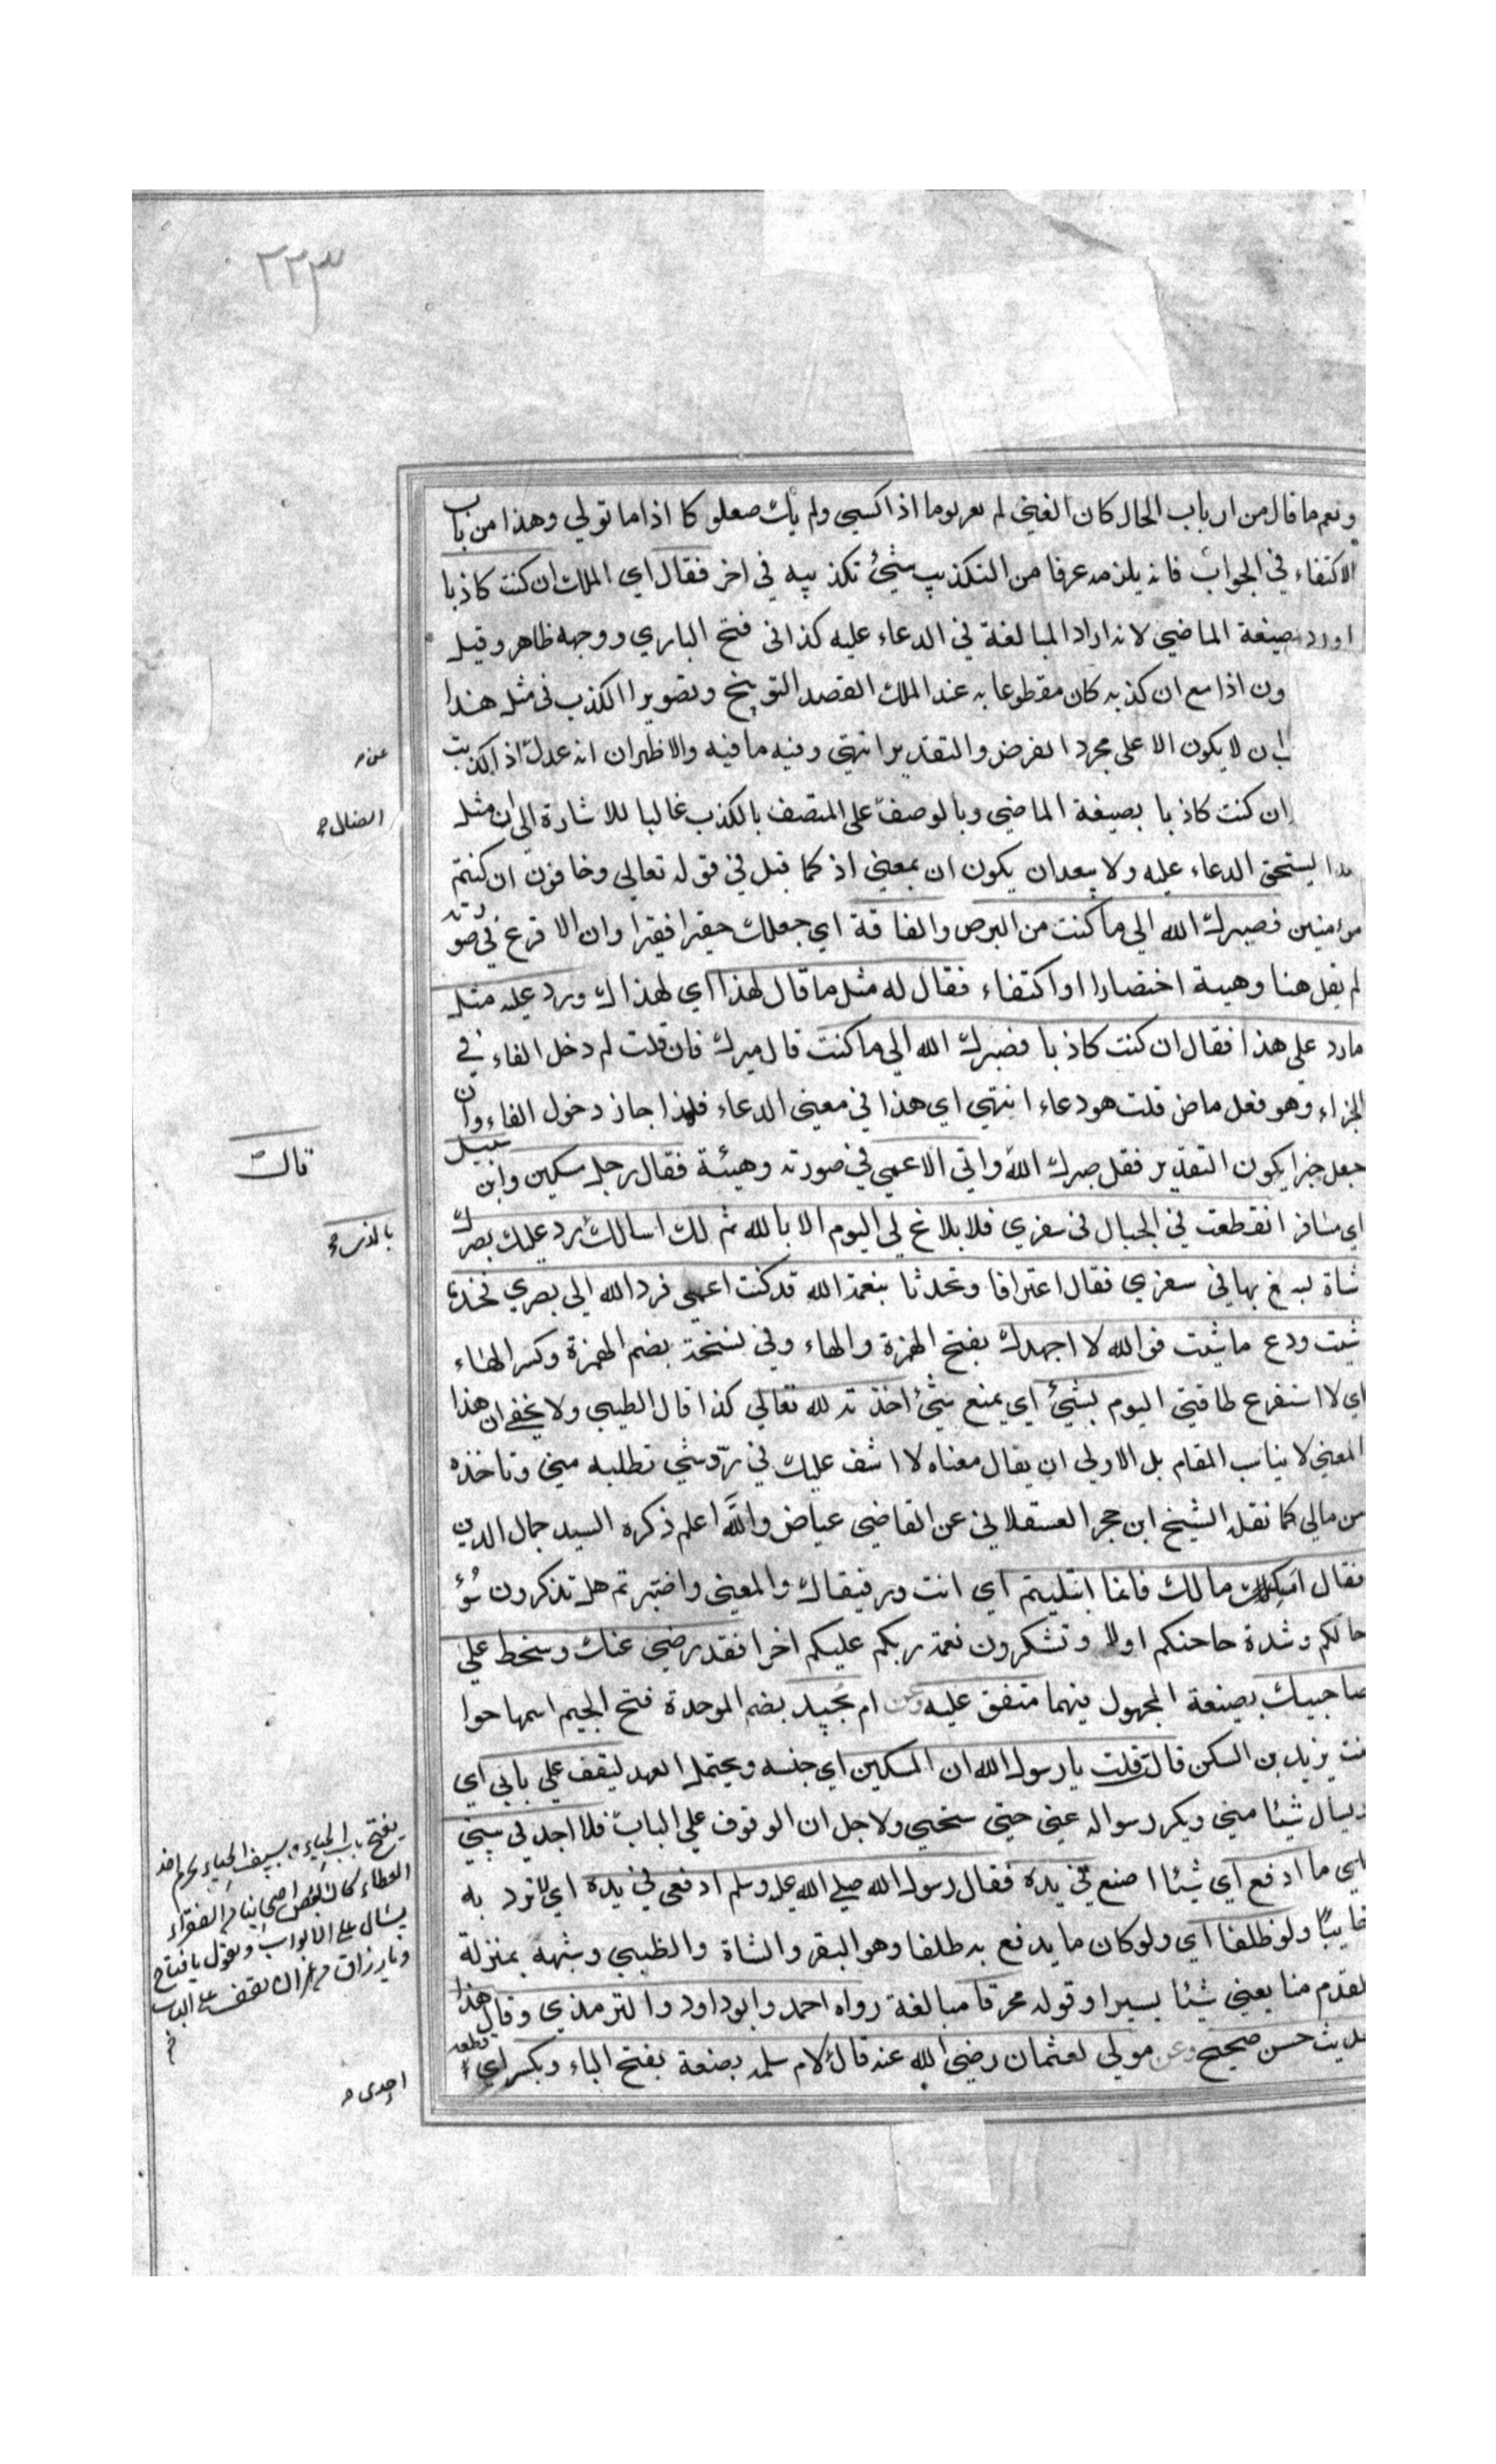 ٢٢٣
ونعم ما قال من ارباب الحال كان الغني لم يعر يوما اذا كسي ولم يك صعلوكا اذا ما تولي وهذا من باب
الاكتفاء في الجواب فانه يلزمه عرفا من التكذيب شئ تكذيبه في اخر فقال اي الملك ان كنت كاذبا
اورده بصيغة الماضي لانه اراد المبالغة في الدعاء عليه كذا في فتح الباري ووجهه ظاهر وقيل
ون اذا مع ان كذبه كان مقطوعا به عند الملك القصد التوبيخ وتصوير ا الكذب في مثل هذا
ان لا يكون الا على مجرد الفرض والتقدير انتهي وفيه ما فيه والاظهر ان انه عدل اذ اكذبت
عن
ان كنت كاذبا بصيغة الماضي وبالوصف على المتصف بالكذب غالبا للاشارة الى ان مثل
الضال
هذا يستحق الدعاء عليه ولا يبعد ان يكون ان بمعني اذ كما قيل في قوله تعالي وخافون ان كنتم
مؤمنين فصيرك الله الي ما كنت من البرص والفاقة اي جعلك حقيرا فقيرا وان الاقرع في صورته
لم يقل هنا وهيئة اختصارا او اكتفاء فقال له مثل ما قال لهذا اي لهذاك ورد عليه مثل
ما رد على هذا فقال ان كنت كاذبا فصيرك الله الي ما كنت قال ميرك فان قلت لم دخل الفاء في
الجزاء وهو فعل ماض قلت هو دعاء انتهي اي هذا في معني الدعاء فلهذا جاز دخول الفاء وان
جعل خبرا يكون التقدير فقل صيرك الله واتي الاعمي في صورته وهيئة فقال رجل مسكين وابن سبيل
قال
اي مسافر انقطعت في الحبال في سفري فلا بلاغ لي اليوم الا بالله ثم لك اسالك رد عليك بصرك
بالذي
شاة ابلغ بها في سفري فقال اعترافا وتحدثا بنعمة الله قد كنت اعمي فرد الله الى بصري فخذ ما
شئت ودع ما شئت فوالله لا اجهدك بفتح الهمزة والهاء وفي نسخة بضم الهمزة وكسر الهاء
اي لا استفرغ طاقتي اليوم بشئ اي بمنع شئ اخذته لله تعالي كذا قال الطيبي ولا يخفي ان هذا
المعني لا يناسب المقام بل الاولى ان يقال معناه لا اشق عليك في رد شي تطلبه مني وتاخذه
من مالي كما نقله الشيخ ابن حجر العسقلاني عن القاضي عياض والله اعلم ذكره السيد جمال الدين
فقال امسك مالك فانما ابتليتم اي انت ورفيقاك والمعني واختبرتم هل تذكرون سؤ
حالكم وشدة حاحتكم اولا وتشكرون نعمة ربكم عليكم اخرا فقد رضي عنك وسخط علي
صاحبيك بصيغة المجهول فيهما متفق عليه وعن ام بجيد بضم الموحدة فتح الجيم اسمها حوا
بنت يزيد بن السكن قالت قلت يا رسول الله ان المسكين اي جنسه ويحتمل العهد ليقف علي بابي اي
ويسأل شيئا مني ويكرر سواله عني حتي ستحيي ولاجل ان الوقوف علي الباب فلا اجد في بيتي
اي ما ادفع اي شيئا اصنع في يده فقال رسول الله صلي الله عليه وسلم ادفعي في يده اي لا ترد به
خايبا ولو ظلفا اي ولو كان ما يدفع به ظلفا وهو البقر والشاة والظبي وشبهه بمنزلة
القدم منا يعني شيئا يسيرا وقوله محرقا مبالغة رواه احمد وابو داود والترمذي وقال هذا
حديث حسن صحيح وعن مولي لعثمان رضي الله عنه قال لام سلمة بضعة بفتح الباء وبكسر اي قطعة
بفتح باب الحياء
العطاء كان بعض اصحابنا من الفقراء
يسال علي الابواب ويقول يا فتاح
ويا رزاق
اهدي